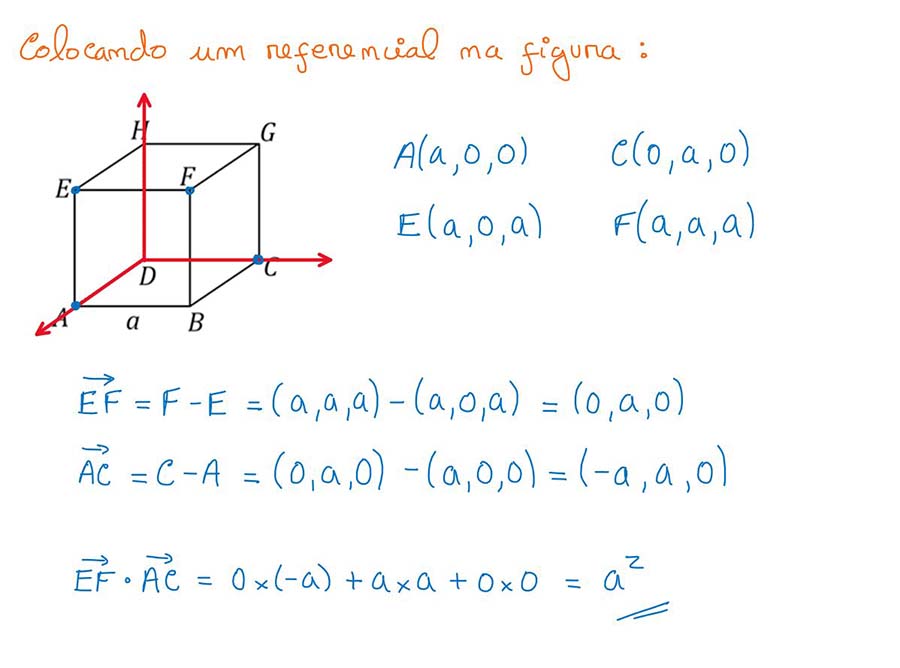 Colocando um referencial na figura :
H
G
E
F
D
C
A
a
B
A(a,0,0) C(0,a,0)
E(a,0,a) F(a,a,a)
EF = F - E = (a,a,a) - (a,0,a) = (0,a,0)
AC = C - A = (0,a,0) - (a,0,0) = (-a,a,0)
EF · AC = 0×(-a) + a×a + 0×0 = a²